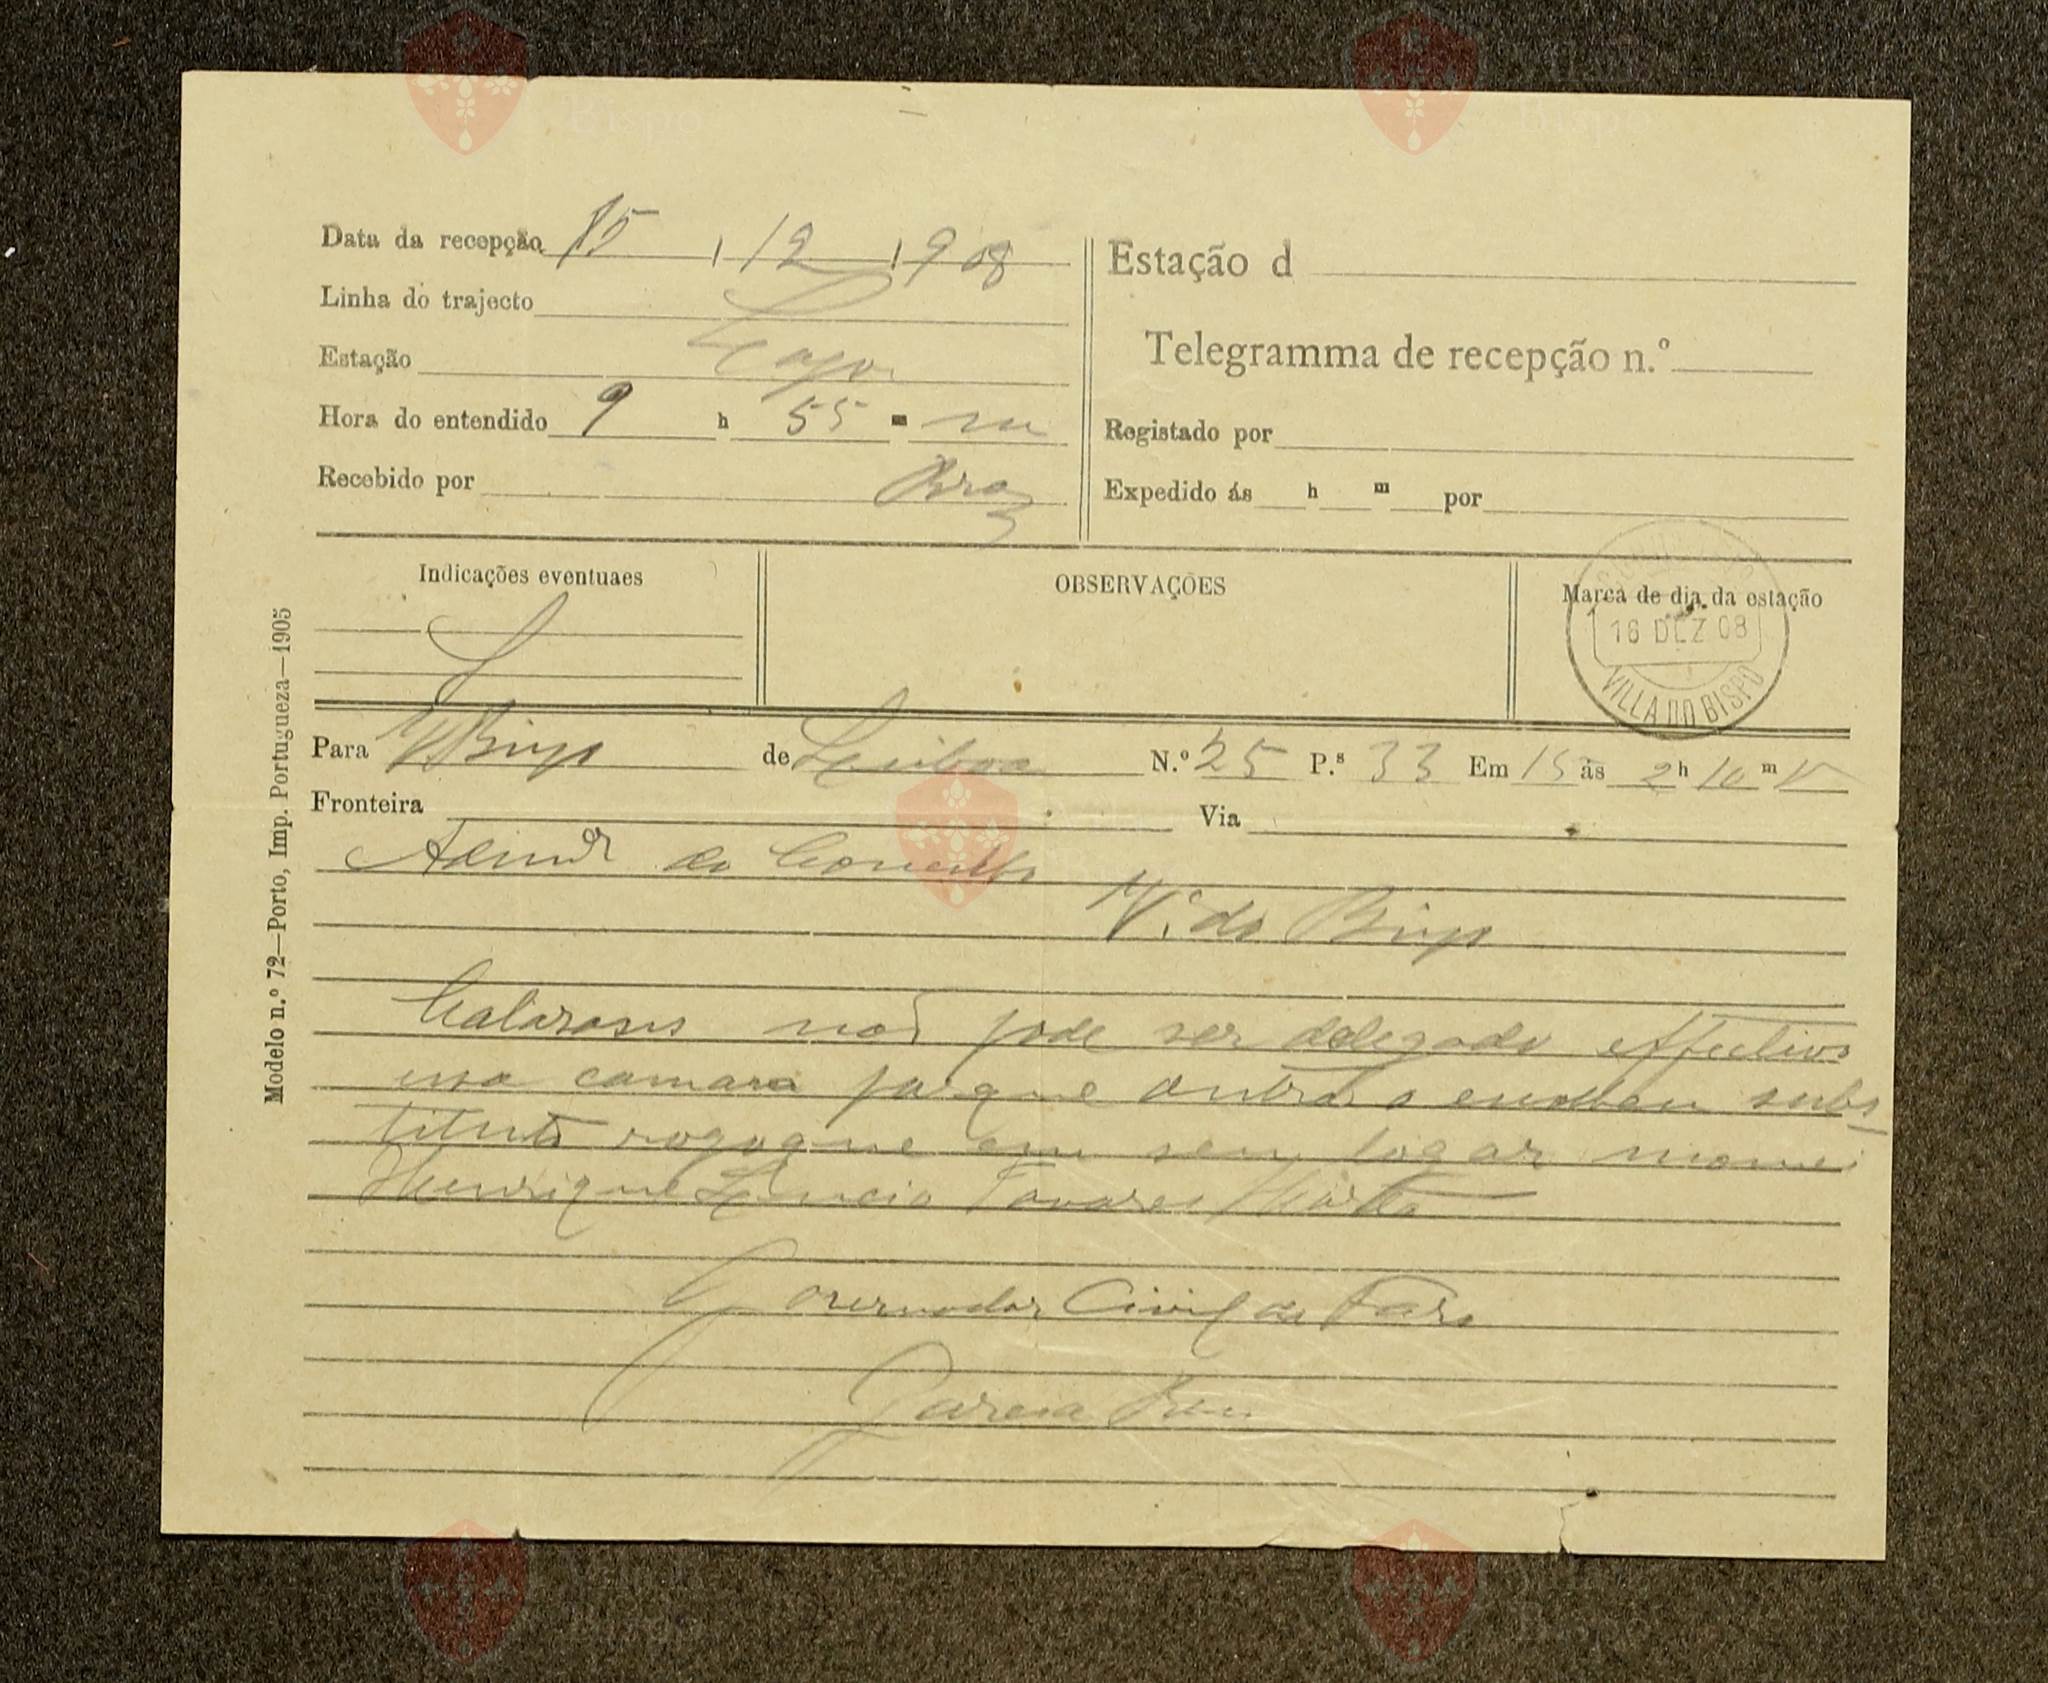 Data da recepção 15 / 12 / 908
Linha do trajecto
Estação Lagos
Hora do entendido 9 h 55 m m
Recebido por Braz
Estação d
Telegramma de recepção n.º
Registado por
Expedido ás h m por
Indicações eventuaes
OBSERVAÇÕES
Marca de dia da estação
16 DEZ 08
VILLA DO BISPO
Modelo n.º 72—Porto, Imp. Portugueza—1905
Para V Bispo de Lisboa N.º 25 P.s 33 Em 15 ás 2 h 10 m
Fronteira Via
Admor do Concelho
V.ª do Bispo
não pode ser delegado effectivo
essa camara porque outra o escolheu subs
tituto rogo que em seu logar nomei
Henrique Tavares
Governador Civil de Faro
Bispo
Bispo